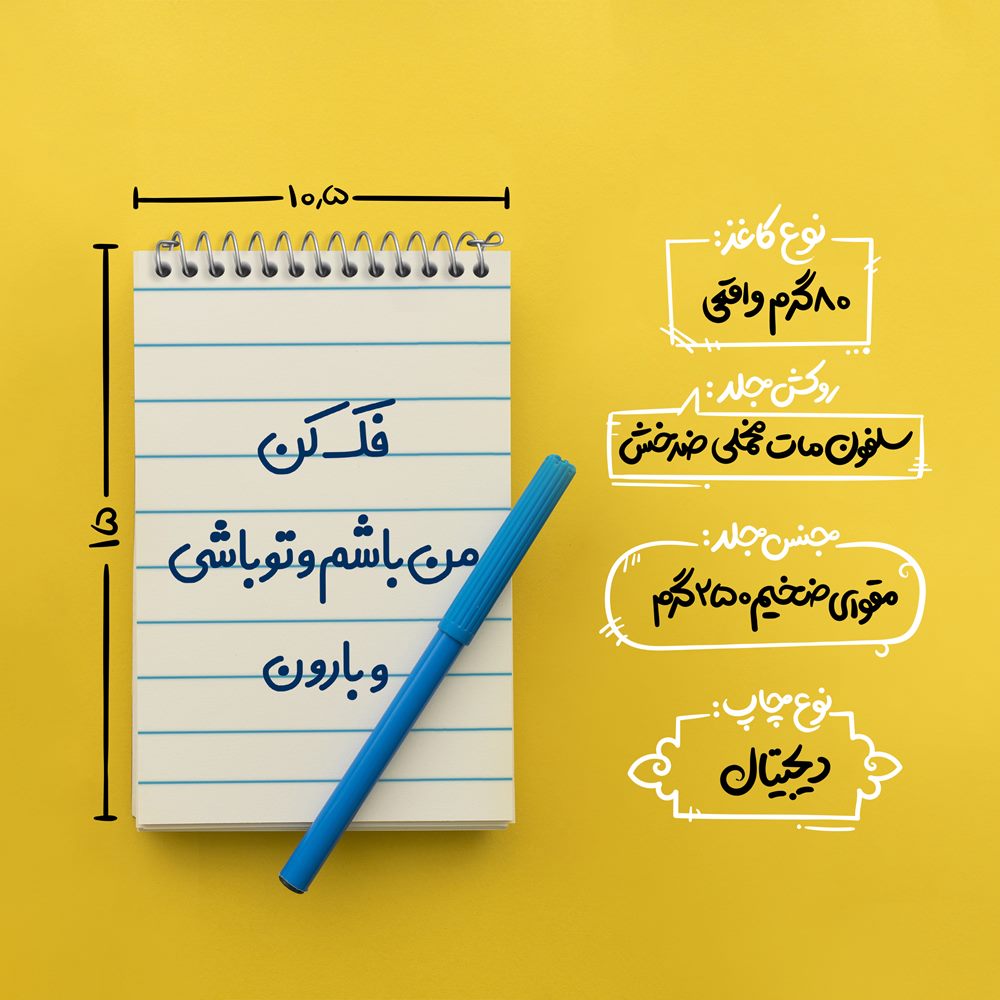 ۱۰,۵
۱۵
فک کن
من باشم و تو باشی
و بارون
نوع کاغذ:
۸۰گرم واقعی
روکش جلد:
سلفون مات مخملی ضدخش
جنس جلد:
مقوای ضخیم ۲۵۰گرم
نوع چاپ:
دیجیتال